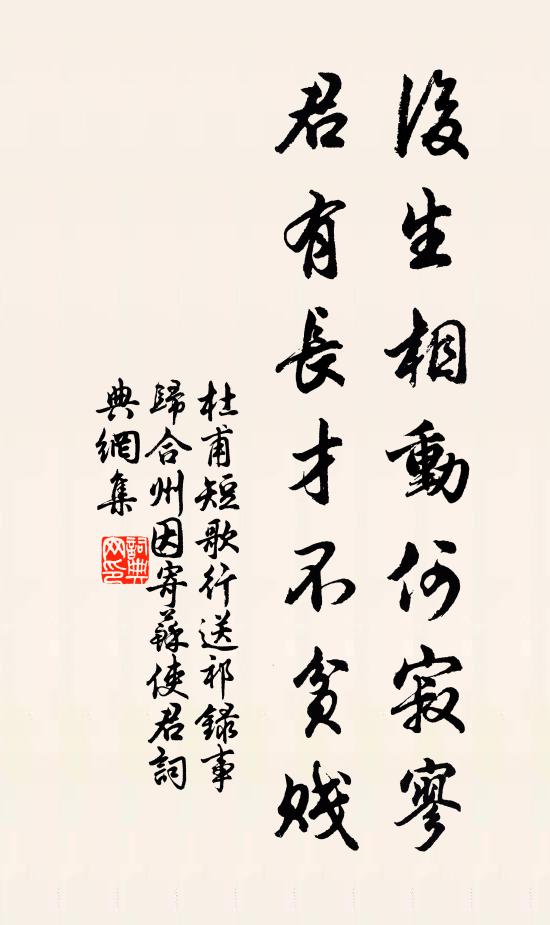 後生相動何寂寥
君有長才不貧賤
杜甫短歌行送祁錄事
歸合州因寄蘇使君詞
典網集
詞典網印